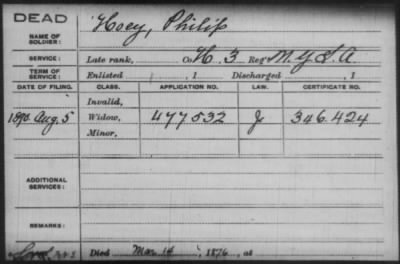 DEAD
NAME OF SOLDIER: Hoey, Philip
SERVICE: Late rank, Co. H. 3 Reg't N.Y. L.A.
TERM OF SERVICE: Enlisted , 1 Discharged , 1
DATE OF FILING. CLASS. APPLICATION NO. LAW. CERTIFICATE NO.
Invalid,
1890 Aug. 5 Widow, 477532 J 346.424
Minor,
ADDITIONAL SERVICES:
REMARKS:
Died Mar 14 , 1876, at